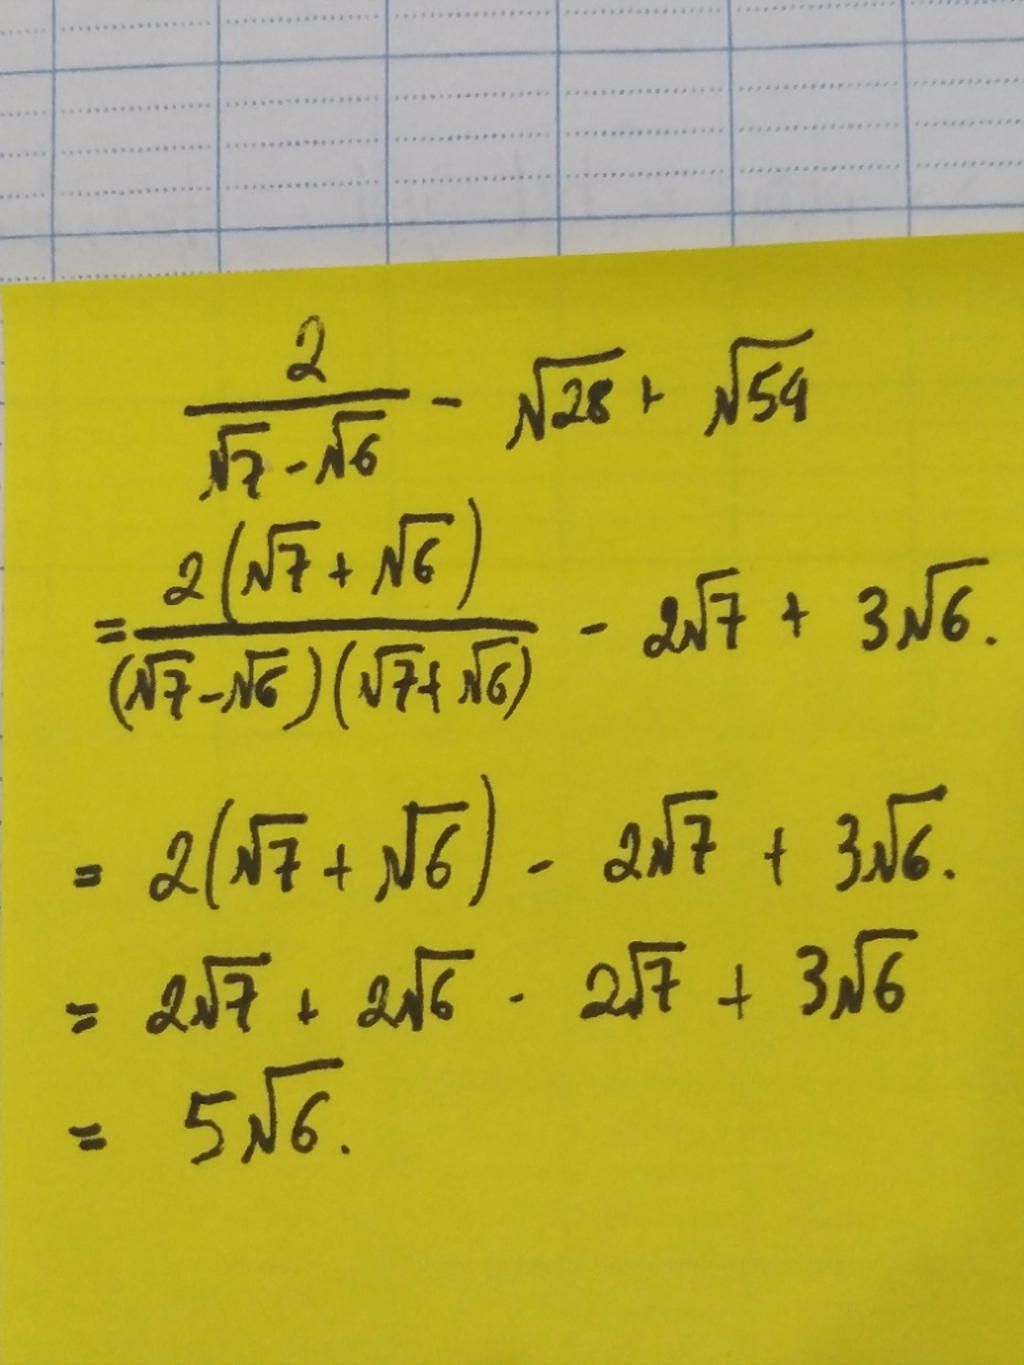 2/(√7 - √6) - √28 + √54
= 2(√7 + √6)/((√7 - √6)(√7 + √6)) - 2√7 + 3√6.
= 2(√7 + √6) - 2√7 + 3√6.
= 2√7 + 2√6 - 2√7 + 3√6
= 5√6.